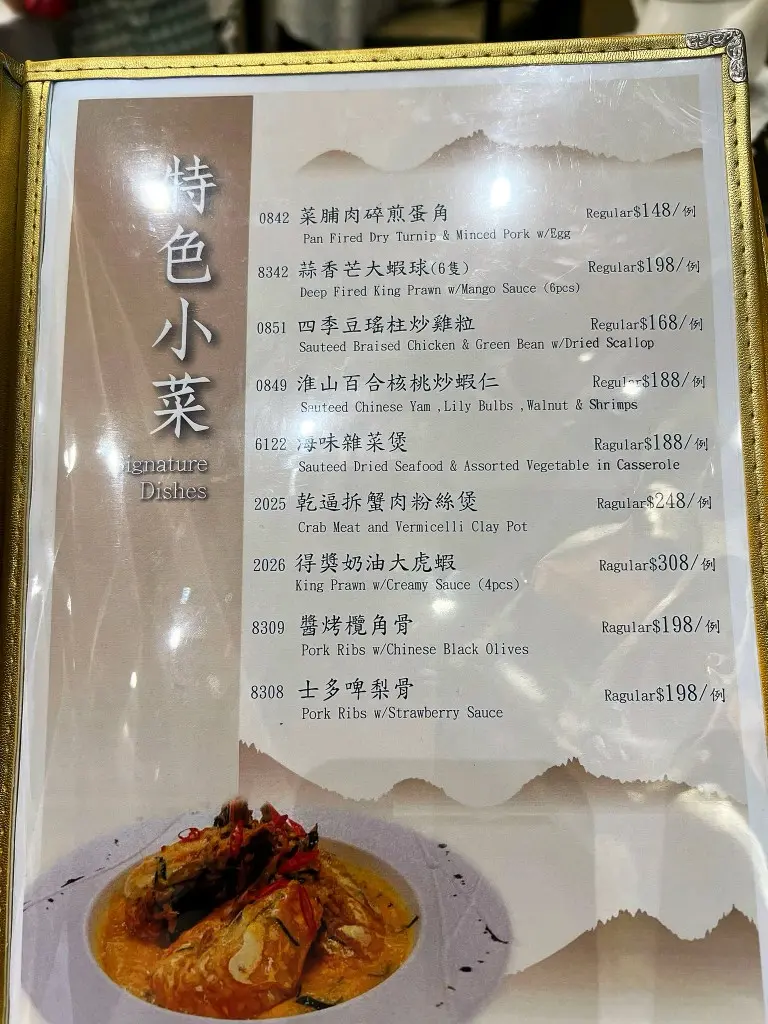 特色小菜
Signature
Dishes
0842 菜脯肉碎煎蛋角 Regular$148/例
Pan Fired Dry Turnip & Minced Pork w/Egg
8342 蒜香芒大蝦球(6隻) Regular$198/例
Deep Fired King Prawn w/Mango Sauce (6pcs)
0851 四季豆瑤柱炒雞粒 Regular$168/例
Sauteed Braised Chicken & Green Bean w/Dried Scallop
0849 淮山百合核桃炒蝦仁 Regular$188/例
Sauteed Chinese Yam ,Lily Bulbs ,Walnut & Shrimps
6122 海味雜菜煲 Ragular$188/例
Sauteed Dried Seafood & Assorted Vegetable in Casserole
2025 乾逼拆蟹肉粉絲煲 Ragular$248/例
Crab Meat and Vermicelli Clay Pot
2026 得獎奶油大虎蝦 Ragular$308/例
King Prawn w/Creamy Sauce (4pcs)
8309 醬烤欖角骨 Ragular$198/例
Pork Ribs w/Chinese Black Olives
8308 士多啤梨骨 Ragular$198/例
Pork Ribs w/Strawberry Sauce